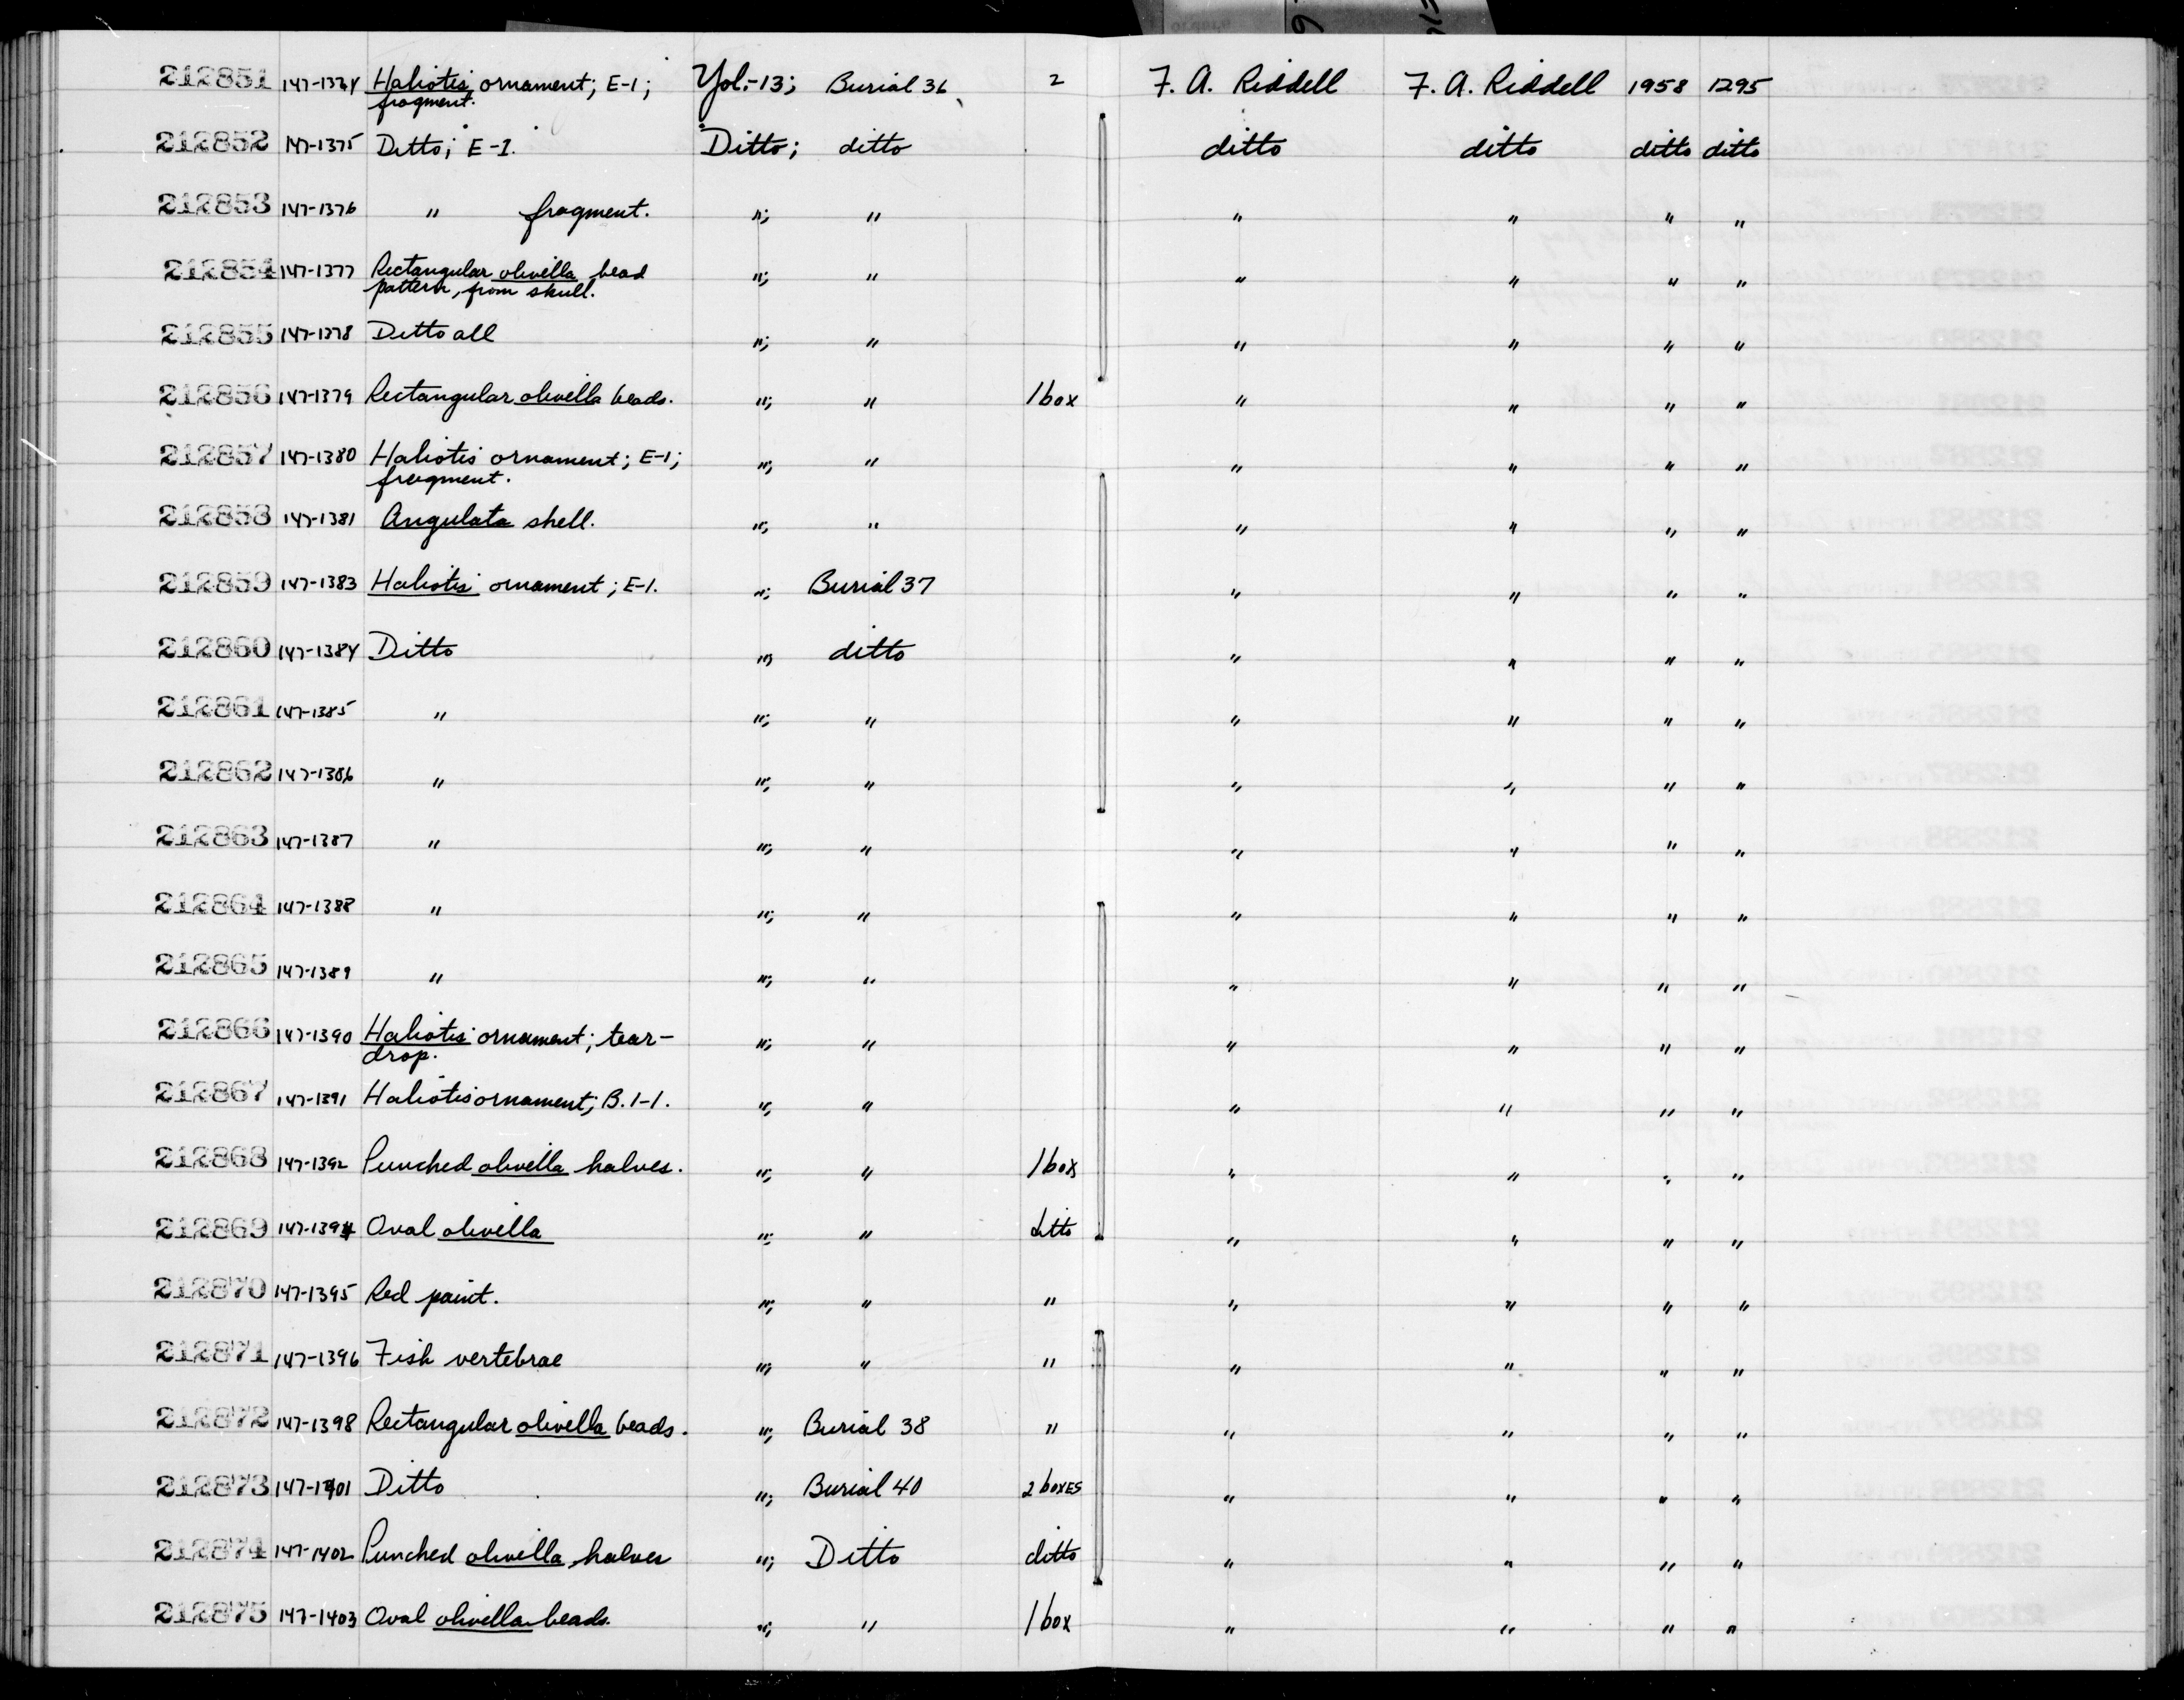 212851 147-1374 Haliotis ornament; E-1; Yol.-13; Burial 36 2 F. A. Riddell F. A. Riddell 1958 1295
fragment.
212852 147-1375 Ditto; E-1. Ditto; ditto ditto ditto ditto ditto
212853 147-1376 " fragment. "; " " " " "
212854 147-1377 Rectangular olivella bead "; " " " " "
pattern, from skull.
212855 147-1378 Ditto all "; " " " " "
212856 147-1379 Rectangular olivella beads. "; " 1 box " " " "
212857 147-1380 Haliotis ornament; E-1; "; " " " " "
fragment.
212858 147-1381 Angulata shell. "; " " " " "
212859 147-1383 Haliotis ornament; E-1. "; Burial 37 " " " "
212860 147-1384 Ditto "; ditto " " " "
212861 147-1385 " "; " " " " "
212862 147-1386 " "; " " " " "
212863 147-1387 " "; " " " " "
212864 147-1388 " "; " " " " "
212865 147-1389 " "; " " " " "
212866 147-1390 Haliotis ornament; tear- "; " " " " "
drop.
212867 147-1391 Haliotis ornament; B.1-1. "; " " " " "
212868 147-1392 Punched olivella halves. "; " 1 box " " " "
212869 147-1394 Oval olivella "; " ditto " " " "
212870 147-1395 Red paint. "; " " " " " "
212871 147-1396 Fish vertebrae "; " " " " " "
212872 147-1398 Rectangular olivella beads. "; Burial 38 " " " " "
212873 147-1401 Ditto "; Burial 40 2 boxes " " " "
212874 147-1402 Punched olivella halves "; Ditto ditto " " " "
212875 147-1403 Oval olivella beads. "; " 1 box " " " "